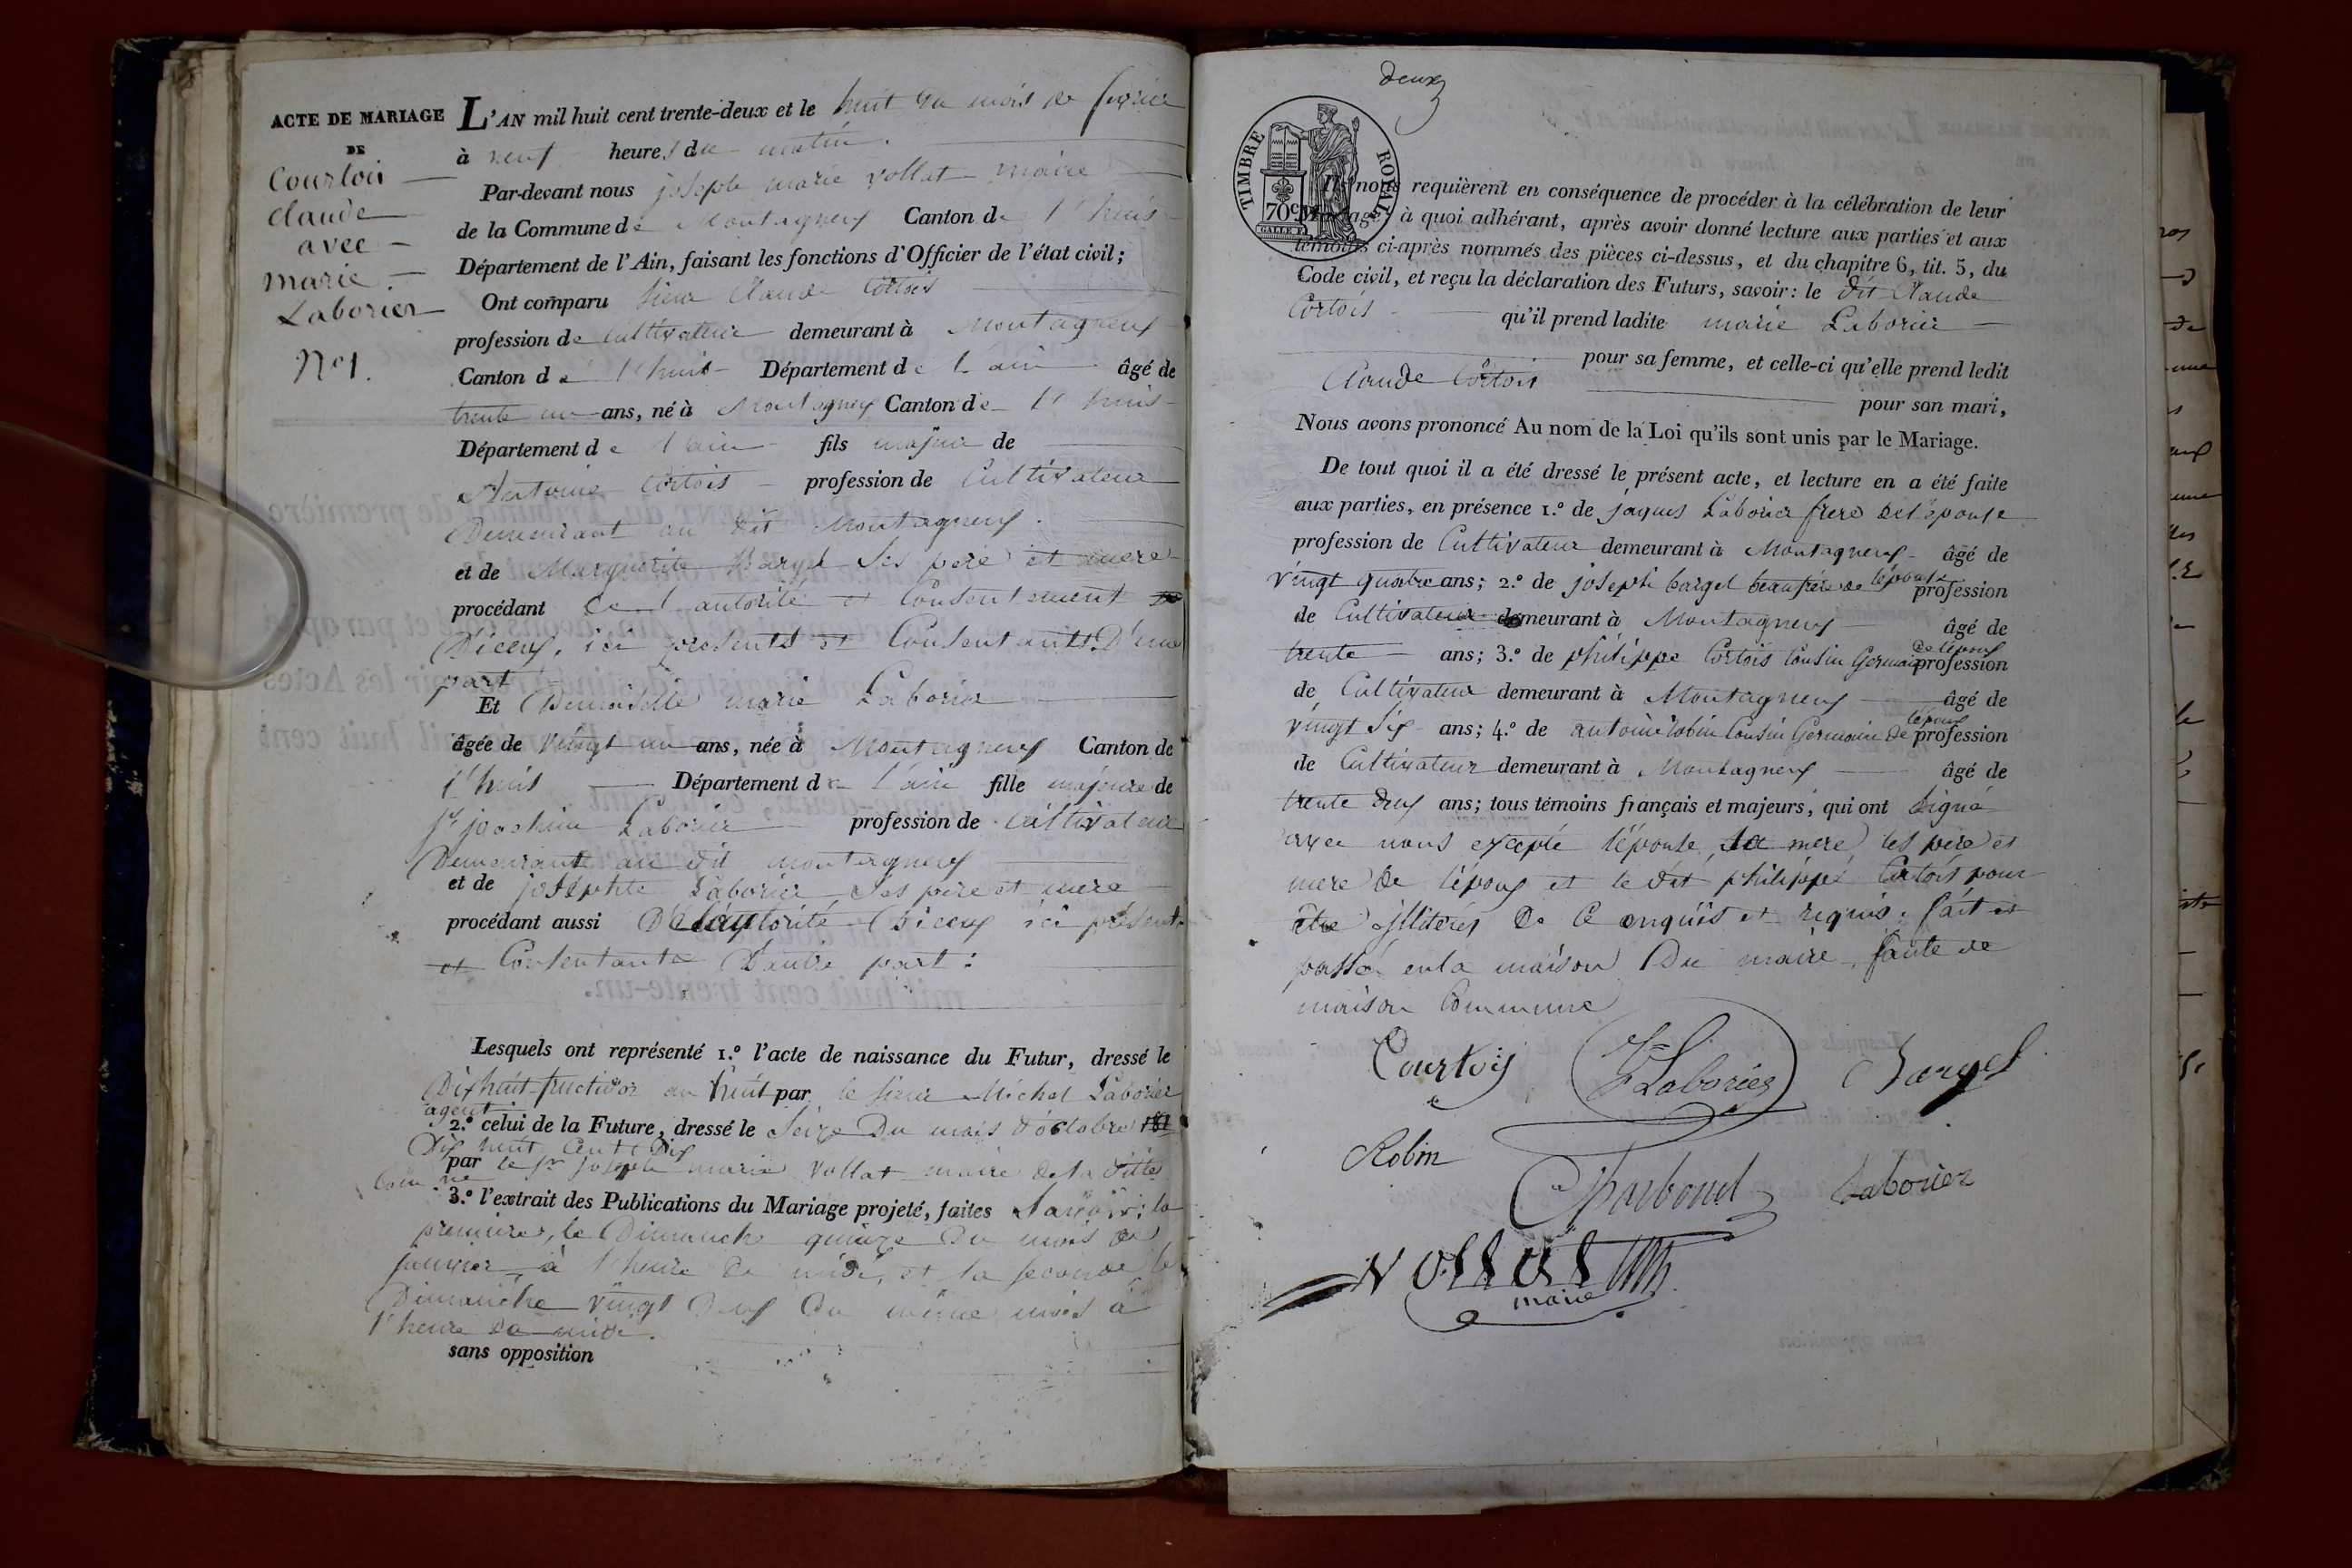 ACTE DE MARIAGE
DE
Courtois
Claude
avec
marie
Laborier
N°1.
L'AN mil huit cent trente-deux et le huit du mois de fevrier
à neuf heures du matin.
Par-devant nous joseph marie vollat maire
de la Commune de Montagneux Canton de l'huis
Département de l'Ain, faisant les fonctions d'Officier de l'état civil;
Ont comparu sieur Claude Cortois
profession de cultivateur demeurant à Montagneux
Canton de l'huis Département de l'ain âgé de
trente un ans, né à Montagneux Canton de l'huis
Département de l'ain fils majeur de
Antoine Cortois profession de Cultivateur
Demeurant au dit Montagneux.
et de Marguerite Bargel ses pere et mere
procédant de l'autorité et Consentement
D'iceux, ici presents et Consentants D'une
part
Et Demoiselle marie Laborier
âgée de vingt un ans, née à Montagneux Canton de
l'huis Département de l'ain fille majeure de
Sr joachim Laborier profession de cultivateur
Demeurant au dit montagneux
et de josephte Laborier ses pere et mere
procédant aussi De l'autorité D'iceux ici présents
et Consentants D'autre part:
Lesquels ont représenté 1.° l'acte de naissance du Futur, dressé le
Dixhuit fructidor an huit par le sieur Michel Laborier
agent
2.° celui de la Future, dressé le Seize Du mois d'octobre
Dix huit Cent Dix
par le sr joseph marie vollat maire de la ditte
Comne
3.° l'extrait des Publications du Mariage projeté, faites savoir: la
premiere, le Dimanche quinze Du mois de
janvier à l'heure de midi, et la seconde le
Dimanche vingt Deux Du même mois à
l'heure de midi.
sans opposition
deux
TIMBRE ROYAL
70c
GALLE F.
Ils nous requièrent en conséquence de procéder à la célébration de leur
Mariage; à quoi adhérant, après avoir donné lecture aux parties et aux
témoins ci-après nommés des pièces ci-dessus, et du chapitre 6, tit. 5, du
Code civil, et reçu la déclaration des Futurs, savoir: le dit Claude
Cortois qu'il prend ladite marie Laborier
pour sa femme, et celle-ci qu'elle prend ledit
Claude Cortois
pour son mari,
Nous avons prononcé Au nom de la Loi qu'ils sont unis par le Mariage.
De tout quoi il a été dressé le présent acte, et lecture en a été faite
aux parties, en présence 1.° de jaques Laborier frere de l'épouse
profession de Cultivateur demeurant à Montagneux âgé de
vingt quatre ans; 2.° de joseph bargel beaufrère de l'épouse profession
de Cultivateur demeurant à Montagneux âgé de
trente ans; 3.° de philippe Cortois Cousin Germain de l'époux profession
de Cultivateur demeurant à Montagneux âgé de
vingt six ans; 4.° de antoine robin Cousin Germain de l'époux profession
de Cultivateur demeurant à Montagneux âgé de
trente deux ans; tous témoins français et majeurs, qui ont signé
avec nous excepté l'épouse, sa mere, les père et
mere de l'époux et le dit philippe Cortois pour
être illiterés de Ce enquis et requis. fait et
passé en la maison Du maire, faute de
maison Commune
Courtois
Laborier
Bargel
Robin
Charbond
Laborier
vollat
maire